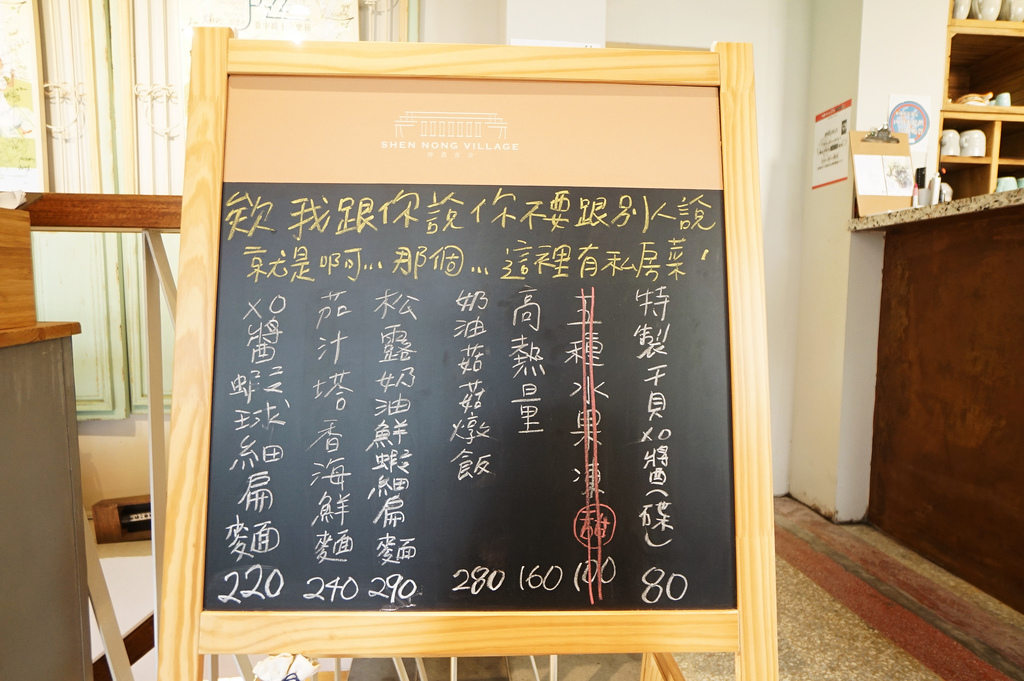 SHEN NONG VILLAGE
欸 我跟你說 你不要跟別人說
就是啊... 那個... 這裡有私房菜,
特製干貝XO醬(碟) 80
五種水果凍 100
高熱量 160
奶油菇菇燉飯 280
松露奶油鮮蝦細扁麵 290
茄汁塔香海鮮麵 240
XO醬蝦球細扁麵 220